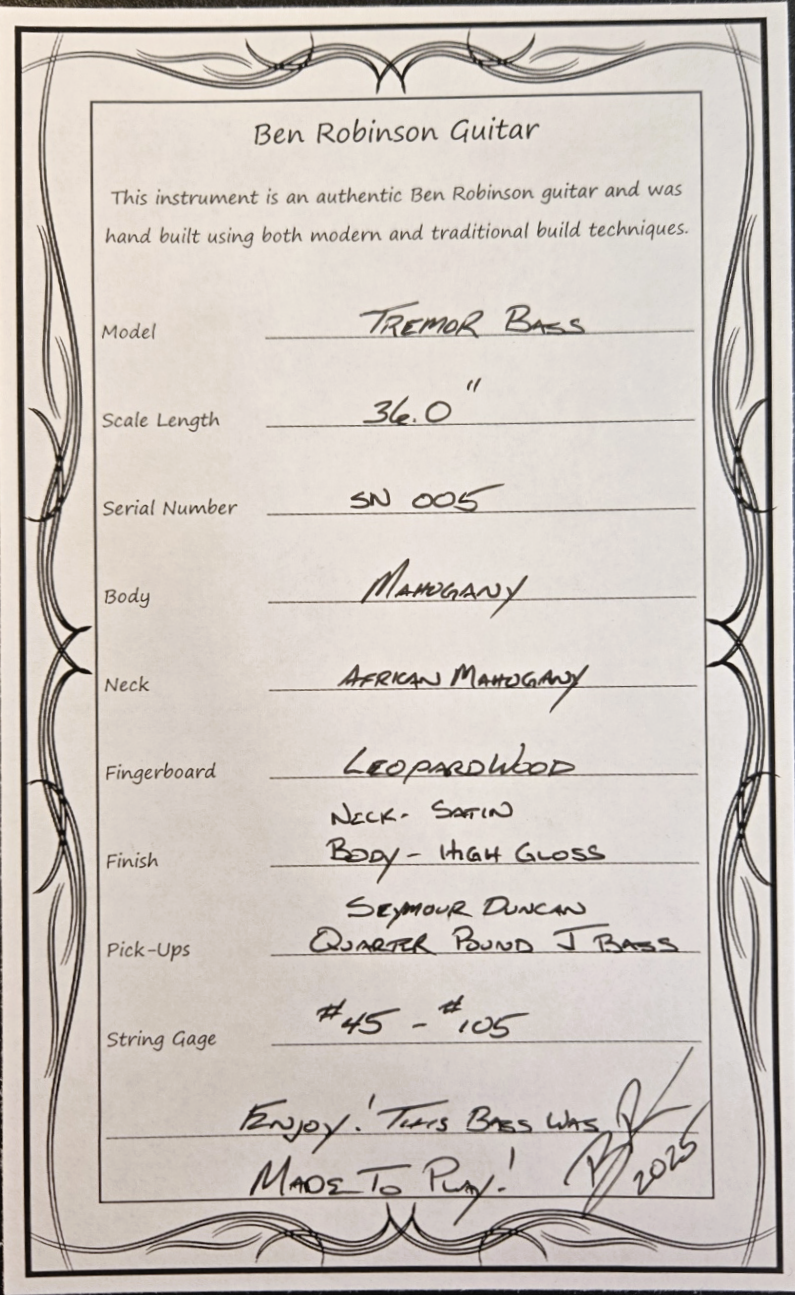 Ben Robinson Guitar
This instrument is an authentic Ben Robinson guitar and was
hand built using both modern and traditional build techniques.
Model TREMOR BASS
Scale Length 36.0"
Serial Number SN 005
Body MAHOGANY
Neck AFRICAN MAHOGANY
Fingerboard LEOPARDWOOD
NECK - SATIN
Finish BODY - HIGH GLOSS
SEYMOUR DUNCAN
Pick-Ups QUARTER POUND J BASS
String Gage #45 - #105
ENJOY! THIS BASS WAS
MADE TO PLAY! BR 2025